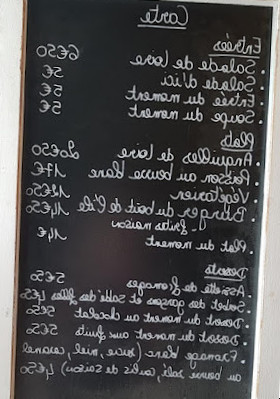 Carte
Entrées
. Salade de Loire 6€50
. Salade d'ici 5€
. Entrée du moment 5€
. Soupe du moment 5€
Plats
. Anguilles de Loire 20€50
. Poisson au beurre blanc 17€
. Végétarien 12€50
. Burger du bout de l'île 14€50
frites maison
. Plat du moment 14€
Desserts
. Assiette de fromages 5€50
. Sorbet des garçons et sablé des filles
. Dessert du moment au chocolat 5€50
. Dessert du moment aux fruits 5€50
. Fromage blanc, sucre, miel, caramel
au beurre salé, coulis (de saison) 4€50